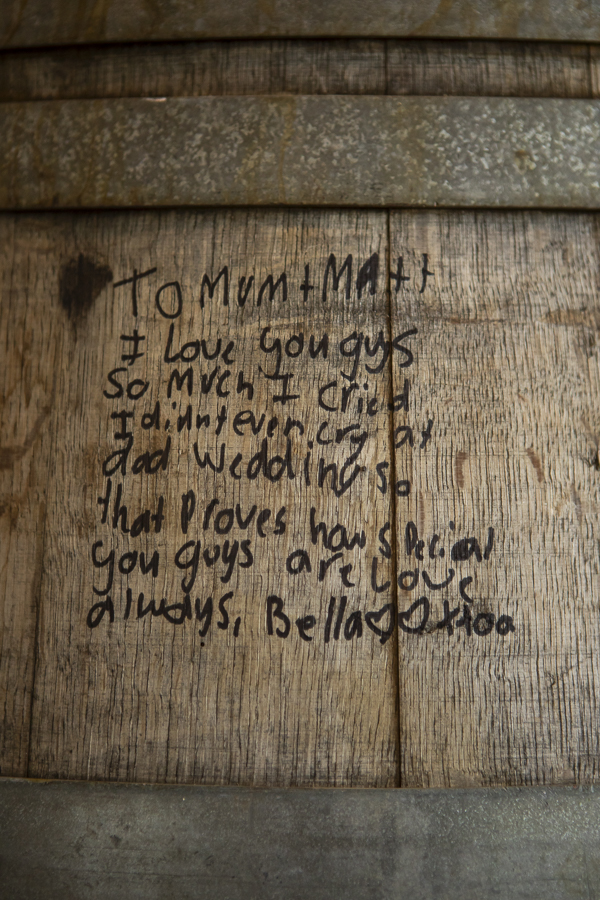 To MUM + MAtt
I Love you guys
So MUch I cried
I didnnt even cry at
dad wedding so
that Proves how special
you guys are Love
always, Bella♡♡ xxoo